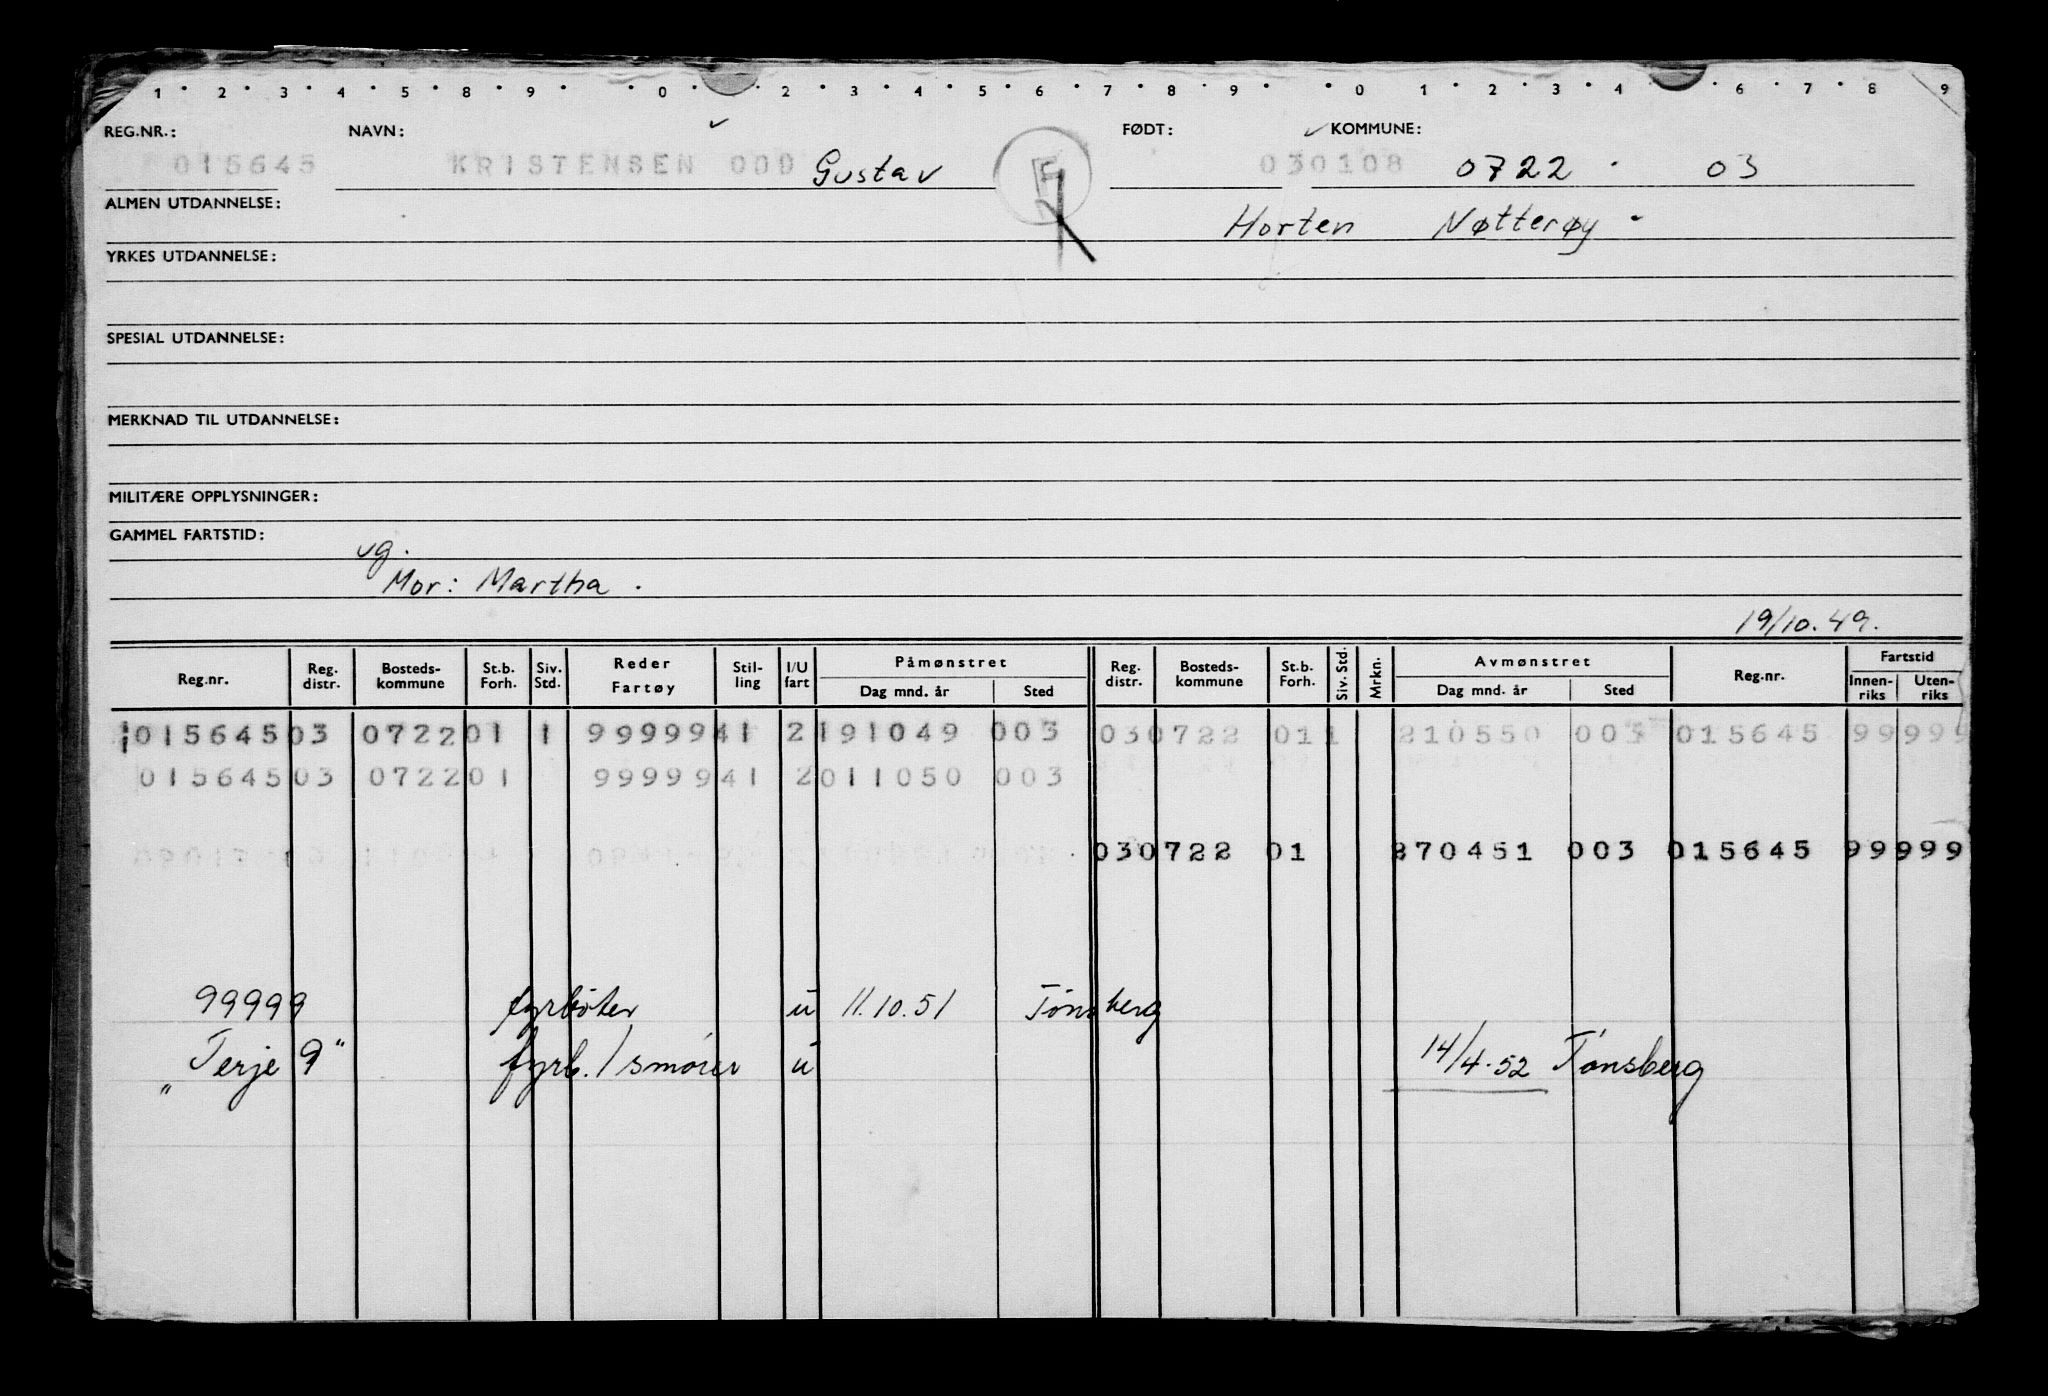 1 · 2 · 3 · 4 · 5 · 8 · 9 · · 0 · 2 · 3 · 4 · 5 · 6 · 7 · 8 · 9 · · 0 1 · 2 · 3 · 4 · 6 · 7 · 8 9
REG.NR.: NAVN: FØDT: KOMMUNE:
015645 KRISTENSEN ODD Gustav 030108 0722 · 03
ALMEN UTDANNELSE: Horten Nøtterøy
YRKES UTDANNELSE:
SPESIAL UTDANNELSE:
MERKNAD TIL UTDANNELSE:
MILITÆRE OPPLYSNINGER:
GAMMEL FARTSTID:
ug.
Mor: Martha.
19/10.49.
Reg.nr. Reg. distr. Bosteds-kommune St.b. Forh. Siv. Std. Reder Fartøy Stil-ling I/U fart Påmønstret Dag mnd. år Sted Reg. distr. Bosteds-kommune St.b. Forh. Siv. Std. Mrkn. Avmønstret Dag mnd. år Sted Reg.nr. Fartstid Innen-riks Uten-riks
015645 03 0722 01 1 99999 41 2 191049 003 03 0722 01 1 210550 003 015645 99999
015645 03 0722 01 99999 41 2 011050 003
03 0722 01 270451 003 015645 99999
99999 fyrbøter u 11.10.51 Tønsberg
"Terje 9" fyrb./smører u 14/4.52 Tønsberg